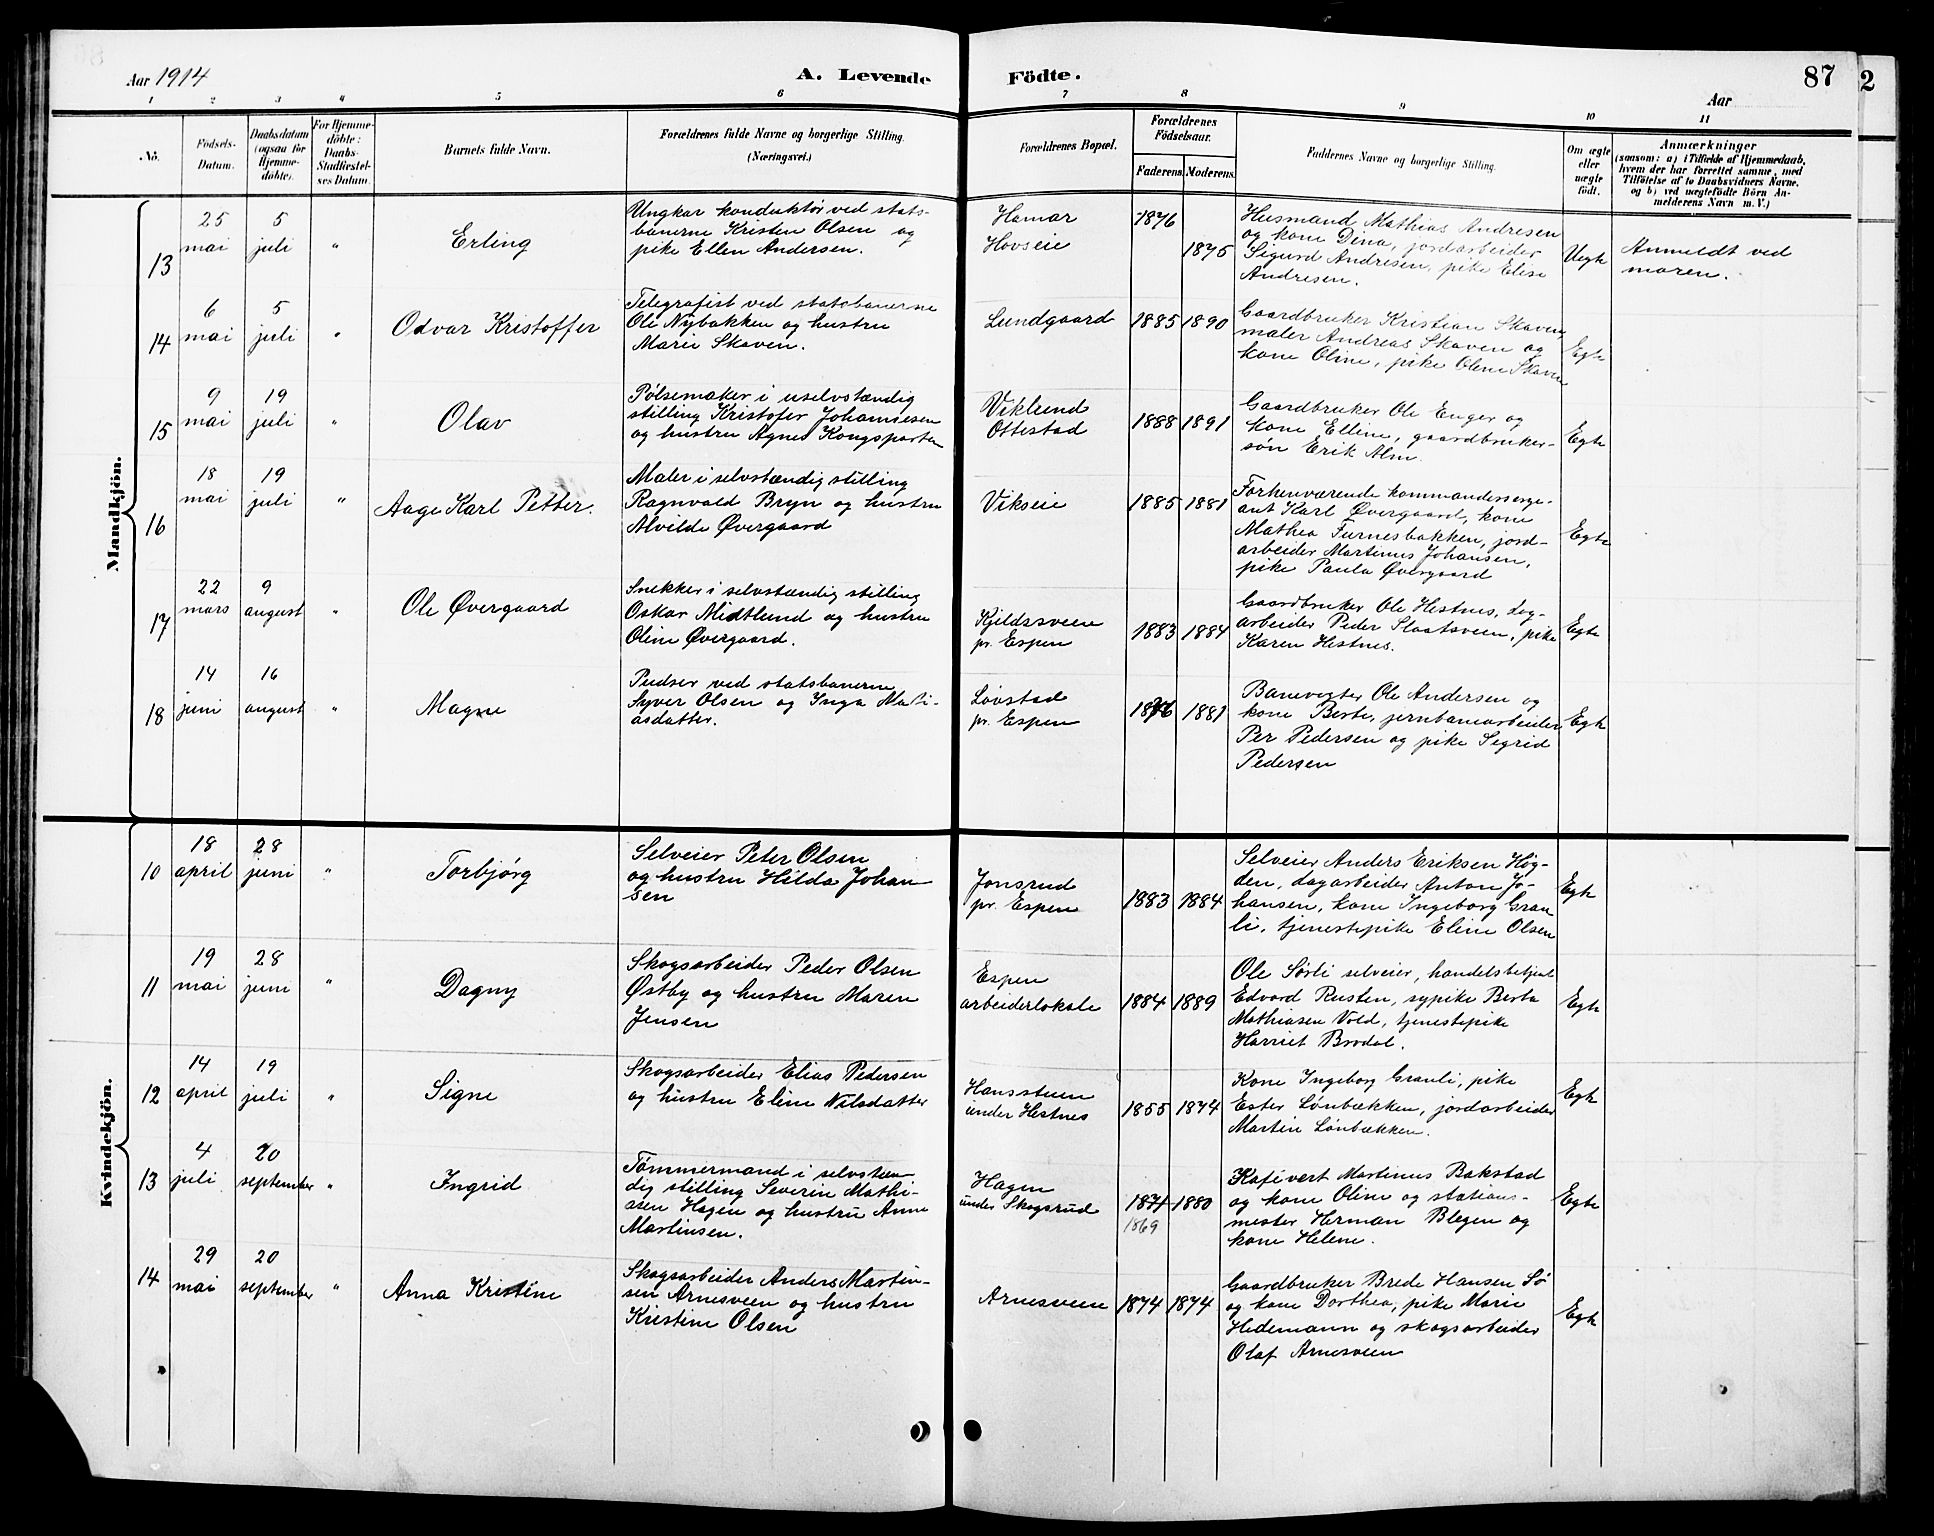 Aar 1914
A. Levende
Födte.
87
Aar
2
1 2 3 4 5 6 7 8 9 10 11
No.
Födsels-
Datum.
Daabsdatum
(ogsaa for
Hjemme-
döbte).
For Hjemme-
döbte:
Daabs-
Stadfæstel-
ses Datum.
Barnets fulde Navn.
Forældrenes fulde Navne og borgerlige Stilling.
(Næringsvei.)
Forældrenes Bopæl.
Forældrenes
Födselsaar.
Faderens. Moderens.
Faddernes Navne og borgerlige Stilling.
Om ægte
eller
uægte
födt.
Anmærkninger
(saasom: a) i Tilfælde af Hjemmedaab,
hvem der har forrettet samme, med
Tilföielse af to Daabsvidners Navne.
og b) ved uægtefödte Börn An-
melderens Navn m. V.)
Mandkjön.
13
25
mai
5
juli
"
Erling
Ungkar konduktør ved stats-
banerne Kristen Olsen og
pike Ellen Andersen.
Hamar
Hovseie
1876
1875
Husmand Mathias Andresen
og kone Dina, jordarbeider
Sigurd Andresen, pike Elise
Andresen.
Uegte
Anmeldt ved
moren.
14
6
mai
5
juli
"
Odvar Kristoffer
Telegrafist ved statsbanerne
Ole Nybakken og hustru
Marie Skaven.
Lundgaard
1885 1890
Gaardbruker Kristian Skaven,
maler Andreas Skaven og
kone Oline, pike Olene Skaven
Egte
15
9
mai
19
juli
"
Olav
Pølsemaker i uselvstændig
stilling Kristofer Johannesen
og hustru Agnes Kongsparten
Viklund
Ottestad
1888 1891
Gaardbruker Ole Enger og
kone Elline, gaardbruker-
søn Erik Alm.
Egte
16
18
mai
19
juli
"
Aage Karl Petter.
Maler i selvstændig stilling
Ragnvald Bryn og hustru
Alvilde Øvergaard
Vikseie
1885 1881
Forhenværende kommanderserge-
ant Karl Øvergaard, kone
Mathea Furnesbakken, jord-
arbeider Martinus Johansen,
pike Paula Øvergaard
Egte
17
22
mars
9
august
"
Ole Øvergaard
Snekker i selvstændig stilling
Oskar Midtlund og hustru
Oline Øvergaard.
Kjeldsveen
pr. Espen
1883 1884
Gaardbruker Ole Hestnes, dag-
arbeider Peder Slaatsveen, pike
Karen Hestnes.
Egte
18
14
juni
16
august
"
Magne
Pudser ved statsbanerne
Syver Olsen og Inga Mati-
asdatter.
Løvstad
pr. Espen
1876 1881
Banevogter Ole Andersen og
kone Berte, jernbanearbeider
Per Pedersen og pike Sigrid
Pedersen
Egte
Kvindekjön.
10
18
april
28
juni
"
Torbjørg
Selveier Peter Olsen
og hustru Hilda Johan
sen
Jonsrud
pr. Espen
1883 1884
Selveier Anders Eriksen Høg-
den, dagarbeider Anton Jo-
hansen, kone Ingeborg Gran
li, tjenestepike Eline Olsen
Egte
11
19
mai
28
juni
"
Dagny
Skogsarbeider Peder Olsen
Østby og hustru Maren
Jensen
Espen
arbeiderlokale
1884 1889
Ole Sørli selveier, handelsbetjent
Edvard Rusten, sypike Berta
Mathiasen Vold, tjenestepike
Harriet Brodal.
Egte
12
14
april
19
juli
"
Signe
Skogsarbeider Elias Pedersen
og hustru Eline Nilsdatter
Hanssteen
under Hestnes
1855 1874
Kone Ingeborg Granli, pike
Ester Lønbækken, jordarbeider
Martin Lønbækken.
Egte
13
4
juli
20
september
"
Ingrid
Tømmermand i selvstæn-
dig stilling Severin Mathi-
asen Hagen og hustru Anne
Martinsen.
Hagen
under Skogsrud
1871 1880
1869
Kafévert Martinus Bakstad
og kone Oline og stations-
mester Herman Blegen og
kone Helene.
Egte
14
29
mai
20
september
"
Anna Kristine
Skogsarbeider Anders Martin-
sen Arnesveen og hustru
Kristine Olsen
Arnesveen
1874 1874
Gaardbruker Brede Hansen Sø
og kone Dorthea, pike Marie
Hedemann og skogsarbeider
Olaf Arnesveen
Egte